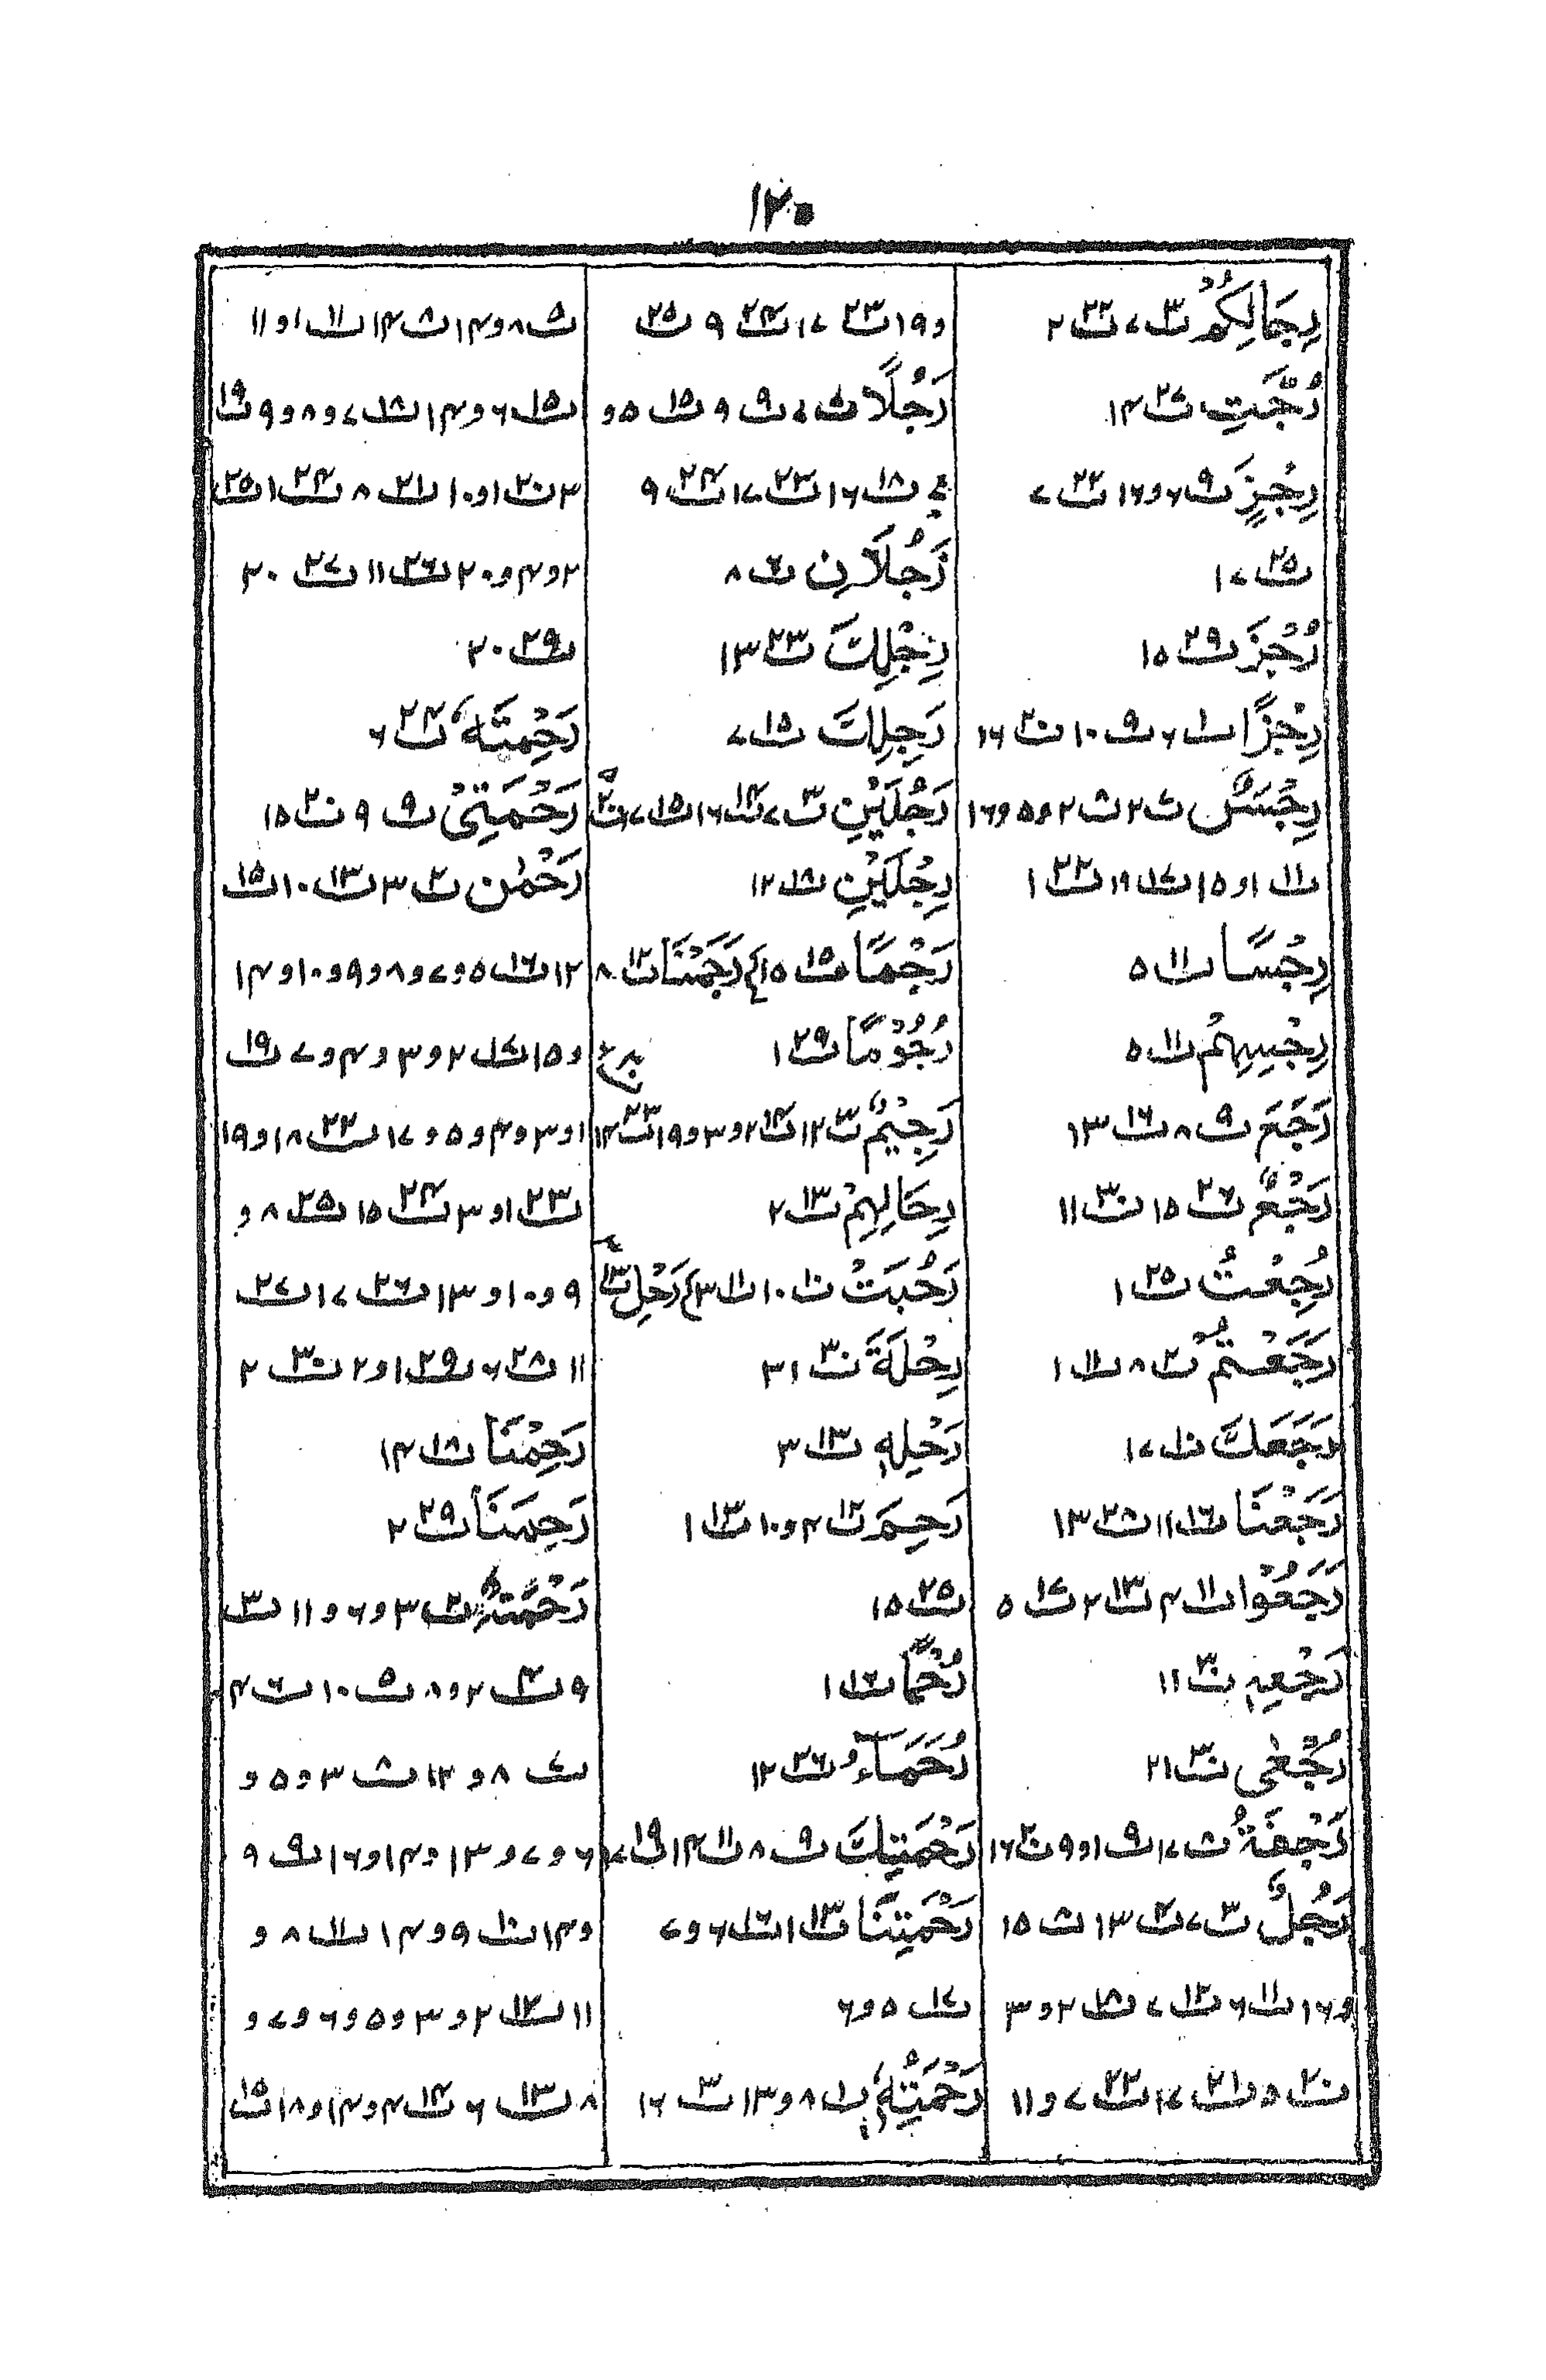 ١٢٠
رِجَالِكُمْ ت٣ ٧ ت٢٢ ٢
رُجَّتِ ت٢٧ ١٤
رِجْزَ ت٩ ٦ و ١٦ ت٢٢ ٧
ت٢٥ ١٧
رُجْزَ ت٢٩ ١٥
رِجْزًا ت١ ٦ ت٩ ١٠ ت٢٠ ١٦
رِجْسٌ ت٧ ٢ ت٨ ٢ و ٥ و ١٦
ت١١ ١ و ١٥ ت١٧ ١١ ت٢٢ ١
رِجْسًا ت١١ ٥
رِجْسِهِمْ ت١١ ٥
رَجَعَ ت٩ ٨ ت١٦ ١٣
رَجْعٌ ت٢٦ ١٥ ت٣٠ ١١
رُجِعْتُ ت٢٥ ١
رَجَعْتُمْ ت٢ ٨ ت١١ ١
رَجَعَكَ ت١٠ ١٧
رَجَعْنَا ت١٦ ١١ ت٢٨ ١٣
رَجَعُوْا ت١١ ٤ ت١٣ ٢ ت١٧ ٥
رَجْعِهٖ ت٣٠ ١١
رُجْعٰى ت٣٠ ٢١
رَجْفَةُ ت٨ ١٧ ت٩ ١ و ٩ ت٢٠ ١٦
رَجُلٌ ت٣ ٧ ت٤ ١٣ ت٨ ١٥
و ١٦ ت١١ ٦ ت١٢ ٧ ت١٨ ٢ و ٣
ت٢٠ ٥ ت٢١ ١٧ ت٢٢ ٧ و ١١
و ١٩ ت٢٣ ١٧ ت٢٤ ٩ ت٢٥
رَجُلًا ت٧ ٤ ت٩ ٩ ت١٥ ٥ و
ت١٨ ١٦ ت٢٣ ١٧ ت٢٤ ٩
رَجُلَانِ ت٦ ٨
رِجْلِكَ ت٢٣ ١٣
رَجِلِكَ ت١٥ ٧
رَجُلَيْنِ ت٣ ٧ ت١٤ ١٦ ت١٥ ١٧ ت٢٠
رِجْلَيْنِ ت١٨ ١٢
رَجْمًا ت١٥ ١٥ رَجَمْنَا ت١٢ ٨
رُجُوْمًا ت٢٩ ١
رَجِيْمٌ ت٣ ١٢ ت١٤ ٢ و ٣ و ١٩ ت٢٣ ١٤
رِحَالِهِمْ ت١٣ ٢
رَحُبَتْ ت١٠ ١٠ ت١١ ٣ رَحْلِ ت١٣
رِحْلَةَ ت٣٠ ٣١
رَحْلِهٖ ت١٣ ٣
رَحِمَ ت١٢ ٤ و ١٠ ت١٣ ١
ت٢٥ ١٥
رُحْمًا ت١٦ ١
رُحَمَآءُ ت٢٦ ١٢
رَحْمَتِكَ ت٩ ٨ ت١١ ١٤ ت١٩ ١٧
رَحْمَتِنَا ت١٣ ١ ت١٦ ٦ و ٧
ت١٧ ٥ و ٦
رَحْمَتِهٖ ت١ ٨ و ١٣ ت٣ ١٦
ت٥ ٨ و ١٤ ت٨ ١٤ ت١١ ١ و ١١
ت١٥ ٦ و ١٤ ت١٨ ٧ و ٨ و ٩ ت١٩
٣ ت٢٠ ١ و ١٠ ت٢١ ٨ ت٢٤ ١ ت٢٥
٢ و ٤ و ٢٠ ت٢٦ ١١ ت٢٧ ٢٠
ت٢٩ ٢٠
رَحْمَتَهٗ ت٢٤ ٦
رَحْمَتِىْ ت٩ ٩ ت٢٠ ١٥
رَحْمٰن ت٢ ٣ ت١٣ ١٠ ت١٥
١٢ ت١٦ ٥ و ٧ و ٨ و ٩ و ١٠ و ١٤
و ١٥ ت١٧ ٢ و ٣ و ٤ و ٧ ت١٩
١ و ٣ و ٤ و ٥ و ١٧ ت٢٢ ١٨ و ١٩
ت٢٣ ١ و ٣ ت٢٤ ١٥ ت٢٥ ٨ و
٩ و ١٠ و ١٣ ت٢٦ ١٧ ت٢٧
١١ ت٢٨ ٦ ت٢٩ ١ و ٢ ت٣٠ ٢
رَحِمْنَا ت١٨ ١٤
رَحِمَنَا ت٢٩ ٢
رَحْمَةٌ ت٢ ٣ و ٦ و ١١ ت٣
٩ ت٤ ٢ و ٨ ت٥ ١٠ ت٦ ٤
ت٧ ٨ و ١٢ ت٨ ٣ و ٥ و
٦ و ٧ و ١٣ و ١٤ و ١٦ ت٩ ٩
و ١٤ ت١٠ ٩ و ١٤ ت١١ ٨ و
١١ ت١٢ ٢ و ٣ و ٥ و ٦ و ٧ و
٨ ت١٣ ٦ ت١٤ ٤ و ١٤ و ١٨ ت١٥